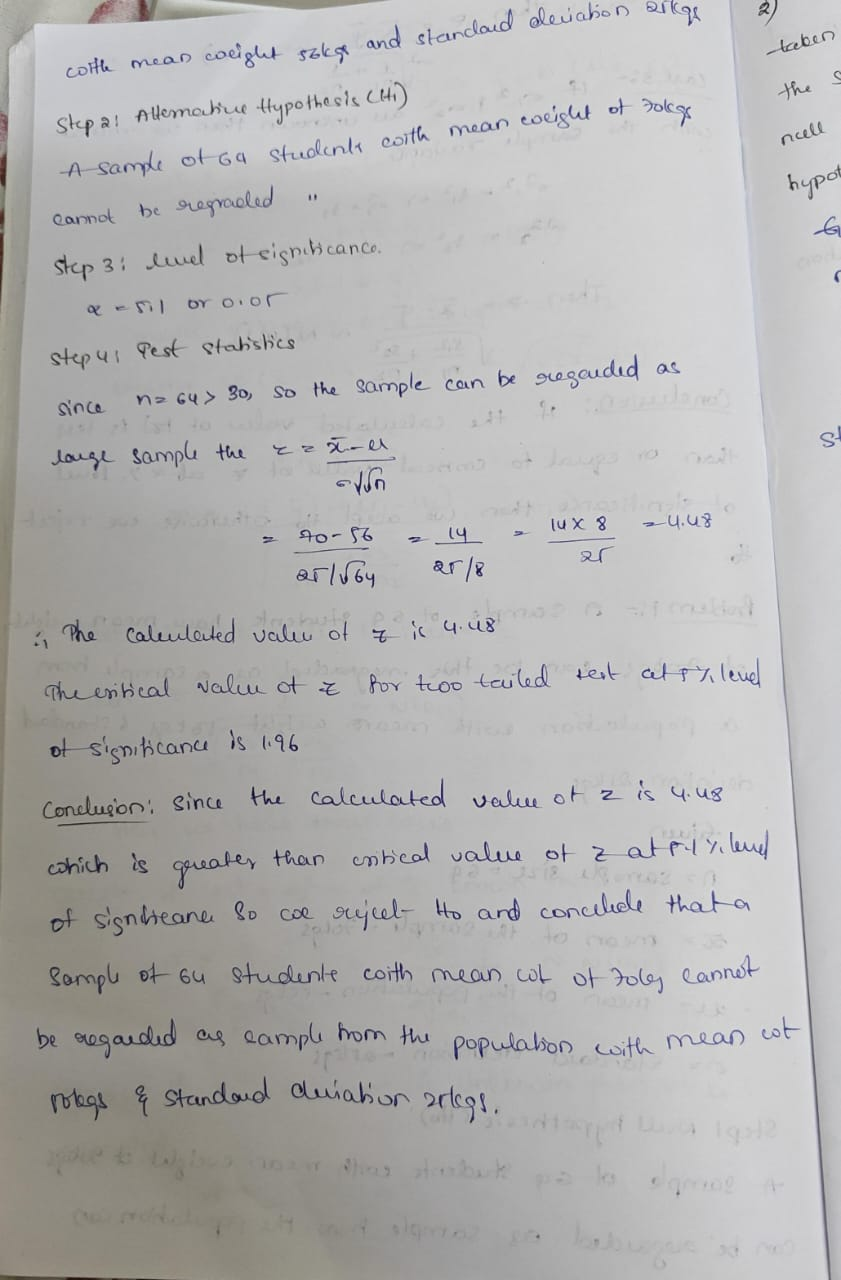 with mean weight 56kgs and standard deviation 25kgs
Step 2: Alternative Hypothesis (H1)
A sample of 64 students with mean weight of 70kgs
cannot be regraded "
Step 3: level of significance.
α = 5% or 0.05
Step 4: Test statistics
since n = 64 > 30, so the sample can be regarded as
large sample the z = x̄ - μ
σ/√n
= 70-56 = 14 = 14 x 8 = 4.48
25/√64 25/8 25
∴ The calculated value of z is 4.48
The critical value of z for two tailed test at 5% level
of significance is 1.96
Conclusion: Since the calculated value of z is 4.48
which is greater than critical value of z at 5% level
of significance So we reject H0 and conclude that a
Sample of 64 students with mean wt of 70kg cannot
be regarded as sample from the population with mean wt
56kgs & standard deviation 25kgs.
2)
taken
the s
null
hypot
st